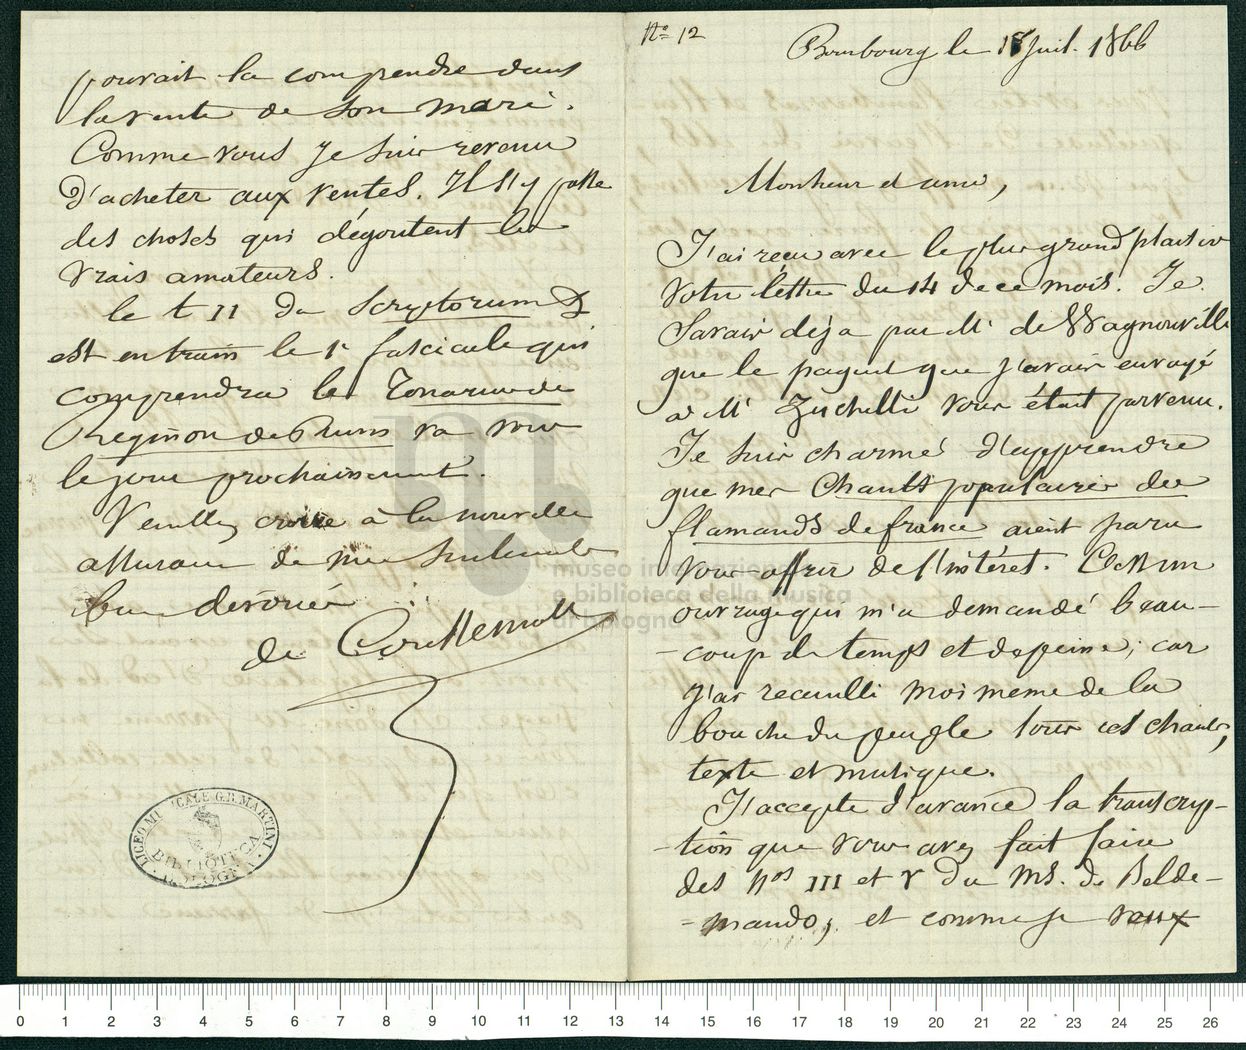 No 12
Bourbourg le 18 Juil. 1866
Monsieur et ami,
J'ai reçu avec le plus grand plaisir
votre lettre du 14 de ce mois. Je
savais déja par Mr de Wagnonville
que le paquet que j'avais envoyé
a Mr Zuchelli vous était parvenu.
Je suis charmé d'apprendre
que mes Chants populaires des
flamands de france aient paru
vous offrir de l'intéret. C'est un
ouvrage qui m'a demandé beau-
-coup de temps et de peine; car
j'ai recueilli moi meme de la
bouche du peuple tous ces chants,
texte et musique.
J'accepte d'avance la transcrip-
-tion que vous avez fait faire
des Nos III et V du MS. de Belde-
-mando; et comme je veux
pouvait la comprendre dans
la vente de son mari.
Comme vous je suis revenu
d'acheter aux ventes. Il s'y passe
des choses qui dégoutent les
vrais amateurs.
le t II du Scryptorum &
est en train le 1r fascicule qui
comprendra le Tonarius de
Reginon de Prum va voir
le jour prochainement.
Veuillez croire à la nouvelle
assurance de mes sentiments
bien dévoués
de Coussemaker
LICEO MUSICALE G.B. MARTINI
BIBLIOTECA
BOLOGNA
museo internazionale
e biblioteca della musica
di bologna
0 1 2 3 4 5 6 7 8 9 10 11 12 13 14 15 16 17 18 19 20 21 22 23 24 25 26